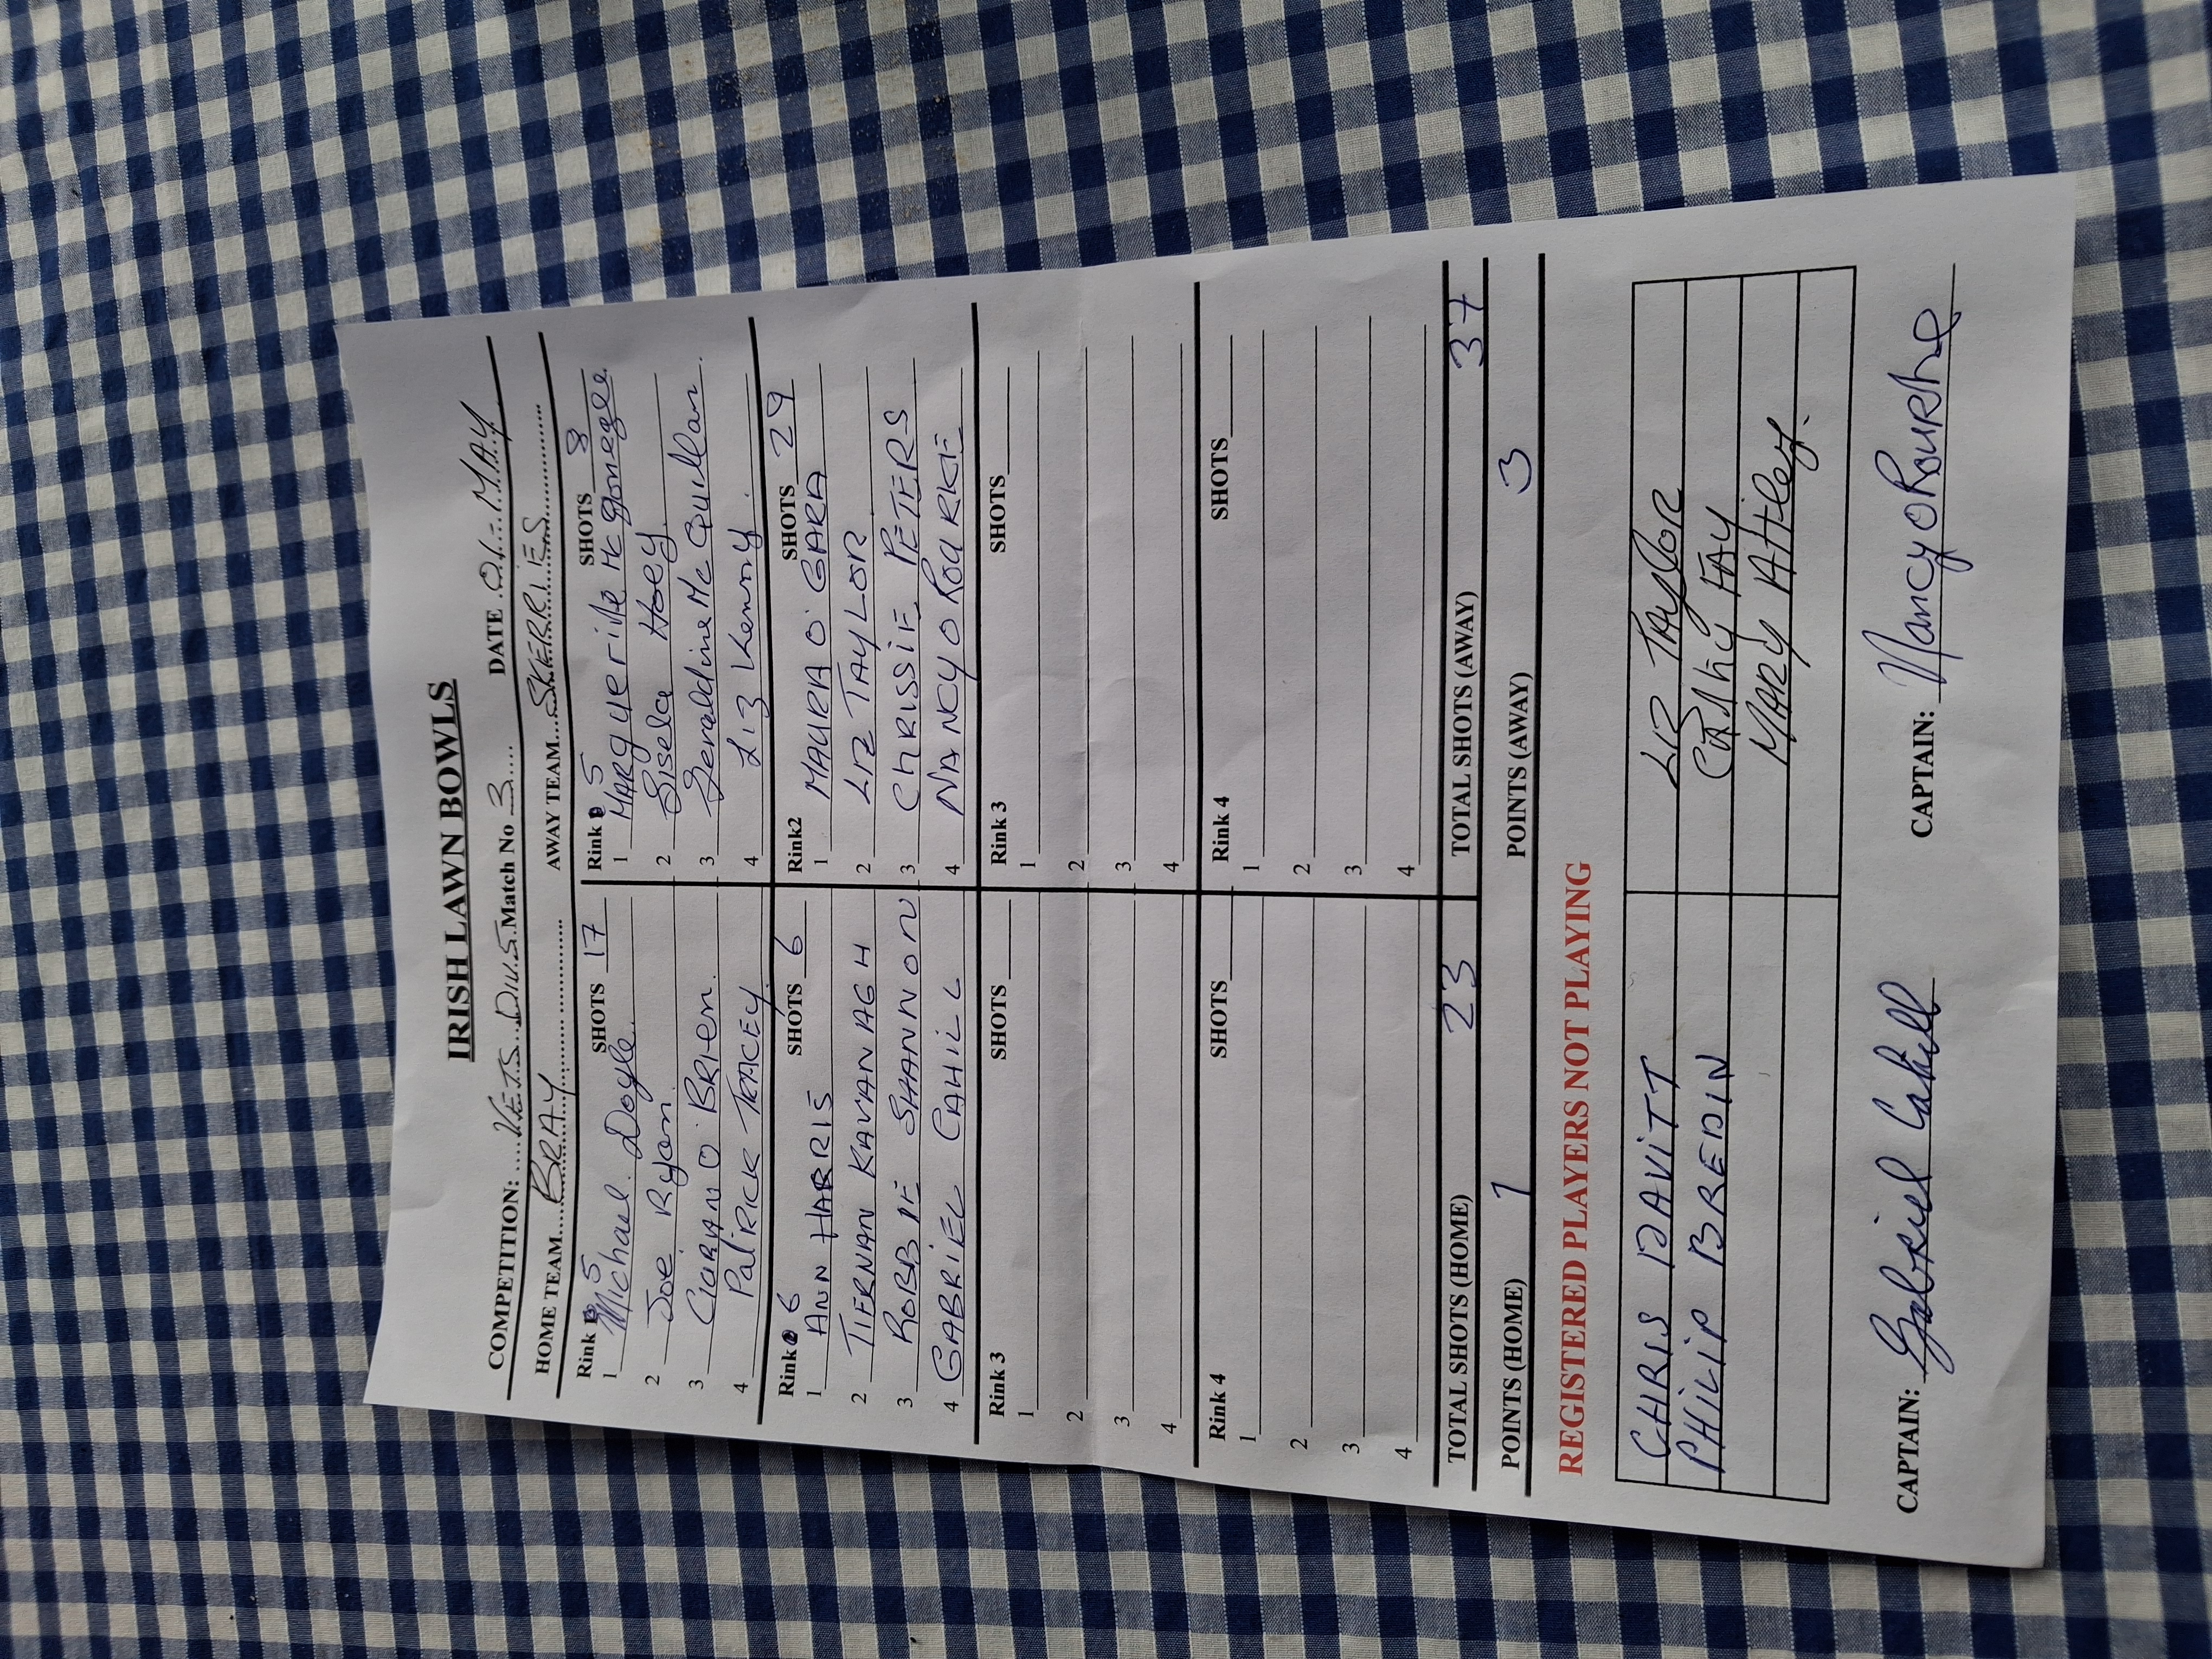 IRISH LAWN BOWLS
COMPETITION: VETS DIV.5 Match No 3 DATE 01-MAY
HOME TEAM BRAY AWAY TEAM SKERRIES
Rink 5 SHOTS 17
1 Michael Doyle
2 Joe Ryan
3 CIARAN O'BRIEN
4 PATRICK TRACEY
Rink 5 SHOTS 8
1 MARGUERITE Mc Gonegle
2 Gisela Hoey
3 Geraldine Mc Quillan
4 Liz Kenny
Rink 6 SHOTS 6
1 ANN HARRIS
2 TIERNAN KAVANAGH
3 ROBBIE SHANNON
4 GABRIEL CAHILL
Rink2 SHOTS 29
1 MAURA O'GARA
2 LIZ TAYLOR
3 CHRISSIE PETERS
4 NANCY O ROURKE
Rink 3 SHOTS
1
2
3
4
Rink 3 SHOTS
1
2
3
4
Rink 4 SHOTS
1
2
3
4
Rink 4 SHOTS
1
2
3
4
TOTAL SHOTS (HOME) 23 TOTAL SHOTS (AWAY) 37
POINTS (HOME) 1 POINTS (AWAY) 3
REGISTERED PLAYERS NOT PLAYING
CHRIS DAVITT LIZ TAYLOR
PHILIP BREDIN CATHY FAY
MARY Attley
CAPTAIN: Gabriel Cahill CAPTAIN: Nancy O Rourke